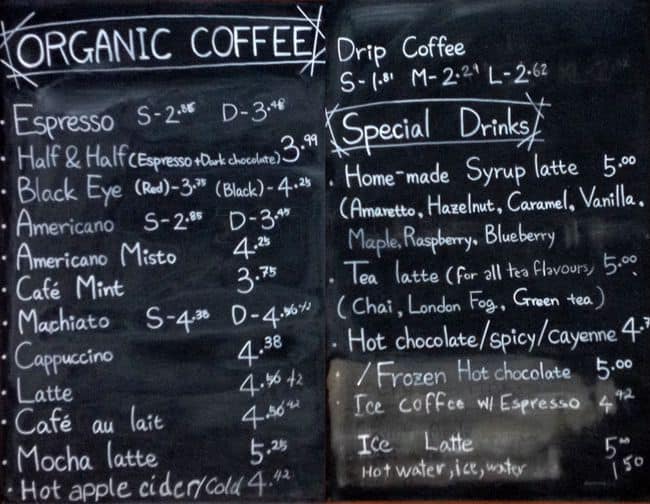 ORGANIC COFFEE
Espresso S-2.85 D-3.45
Half & Half (Espresso+Dark chocolate) 3.99
Black Eye (Red)-3.75 (Black)-4.25
Americano S-2.85 D-3.45
Americano Misto 4.25
Café Mint 3.75
Machiato S-4.38 D-4.42
Cappuccino 4.38
Latte 4.42
Café au lait 4.42
Mocha latte 5.25
Hot apple cider/cold 4.42
Drip Coffee
S-1.81 M-2.29 L-2.62
Special Drinks
Home-made Syrup latte 5.00
(Amaretto, Hazelnut, Caramel, Vanilla.
Maple, Raspberry, Blueberry
Tea latte (for all tea flavours) 5.00
(Chai, London Fog, Green tea)
Hot chocolate/spicy/cayenne
/Frozen Hot chocolate 5.00
Ice Coffee w/ Espresso 4.42
Ice Latte 5.00
Hot water, ice, water 1.50